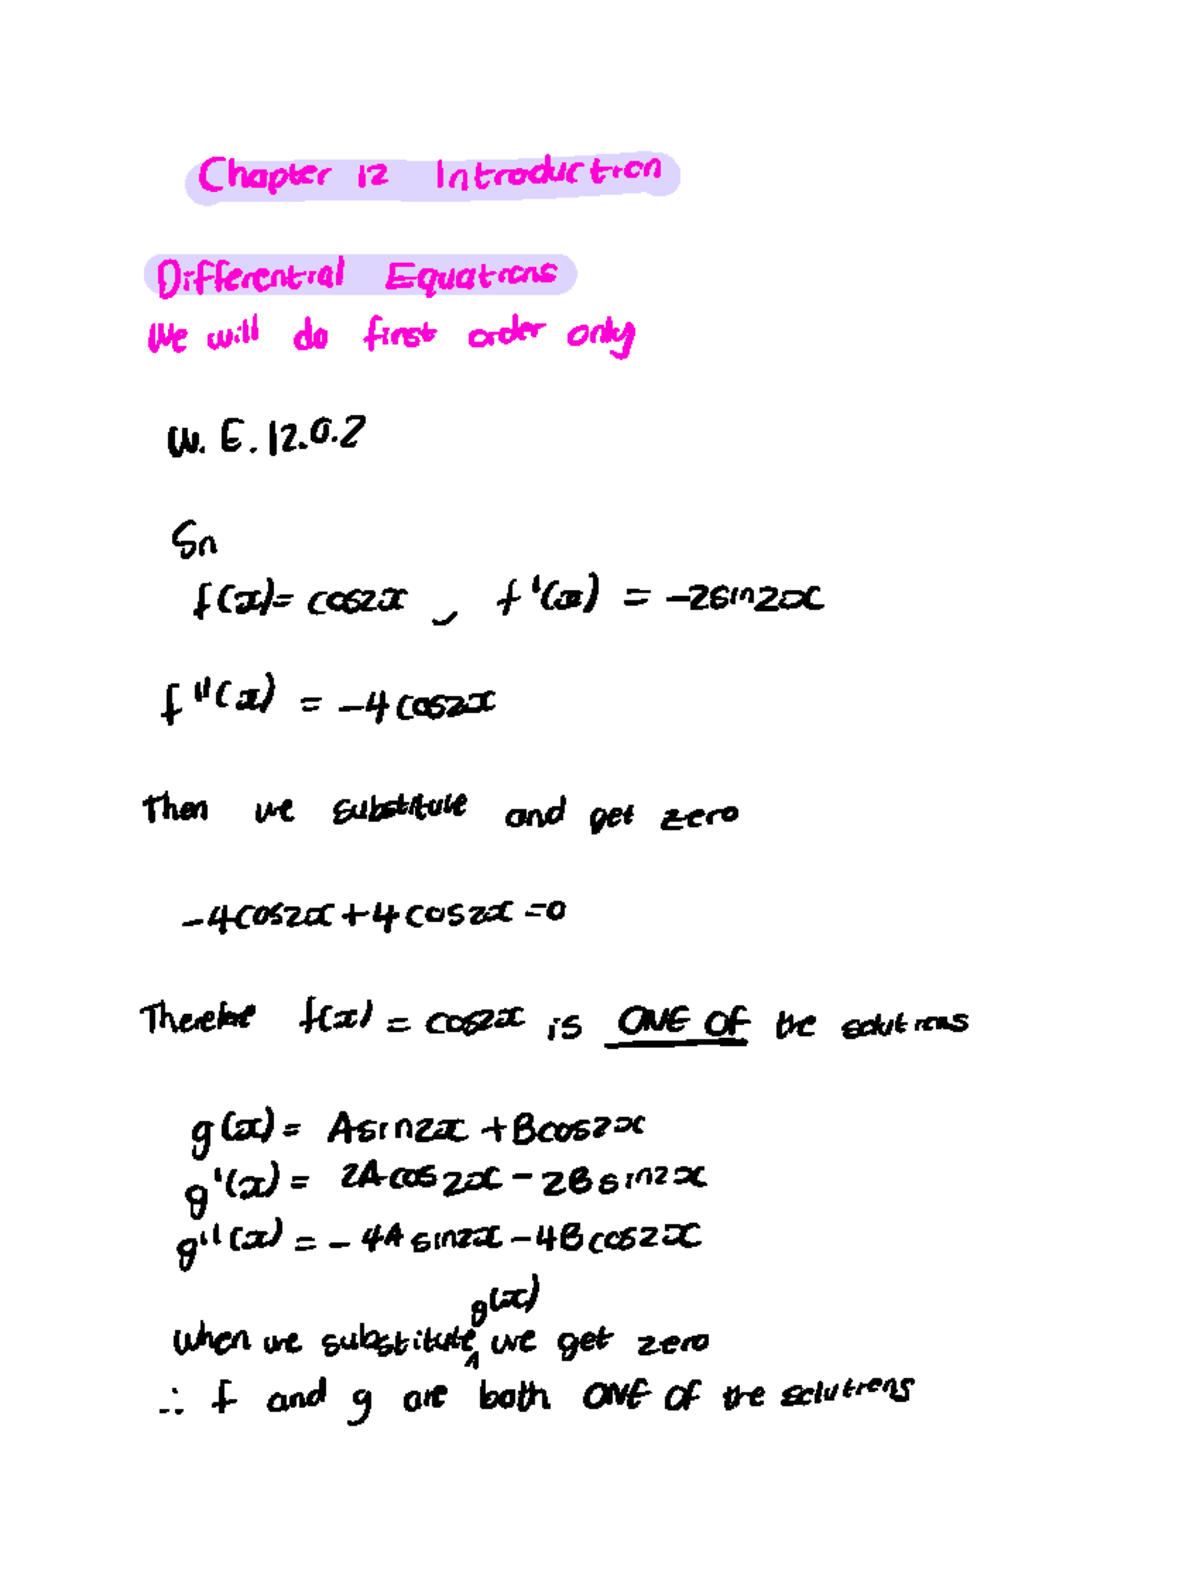 Chapter 12 Introduction
Differential Equations
We will do first order only
W. E. 12.0.2
Sn
f(x)= cos2x , f'(x) = -2sin2x
f''(x) = -4cos2x
Then we substitute and get zero
-4cos2x+4cos2x=0
Therefore f(x) = cos2x is ONE OF the solutions
g(x)= Asin2x +Bcos2x
g'(x)= 2Acos2x - 2Bsin2x
g''(x) = -4Asin2x-4Bcos2x
g(x)
When we substitute we get zero
∴ f and g are both ONE OF the solutions